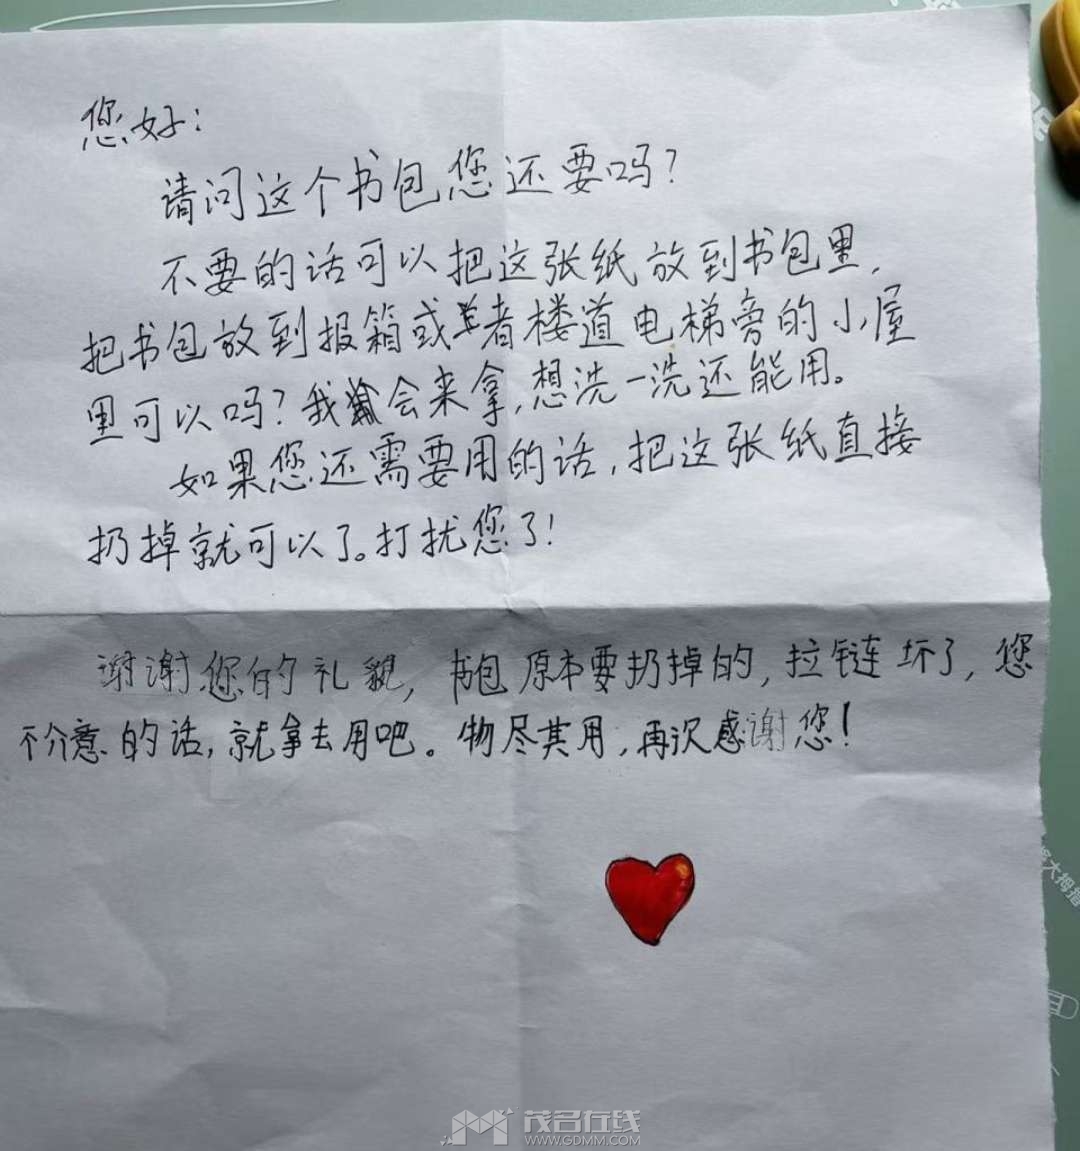 您好:
请问这个书包您还要吗?
不要的话可以把这张纸放到书包里,
把书包放到报箱或者楼道电梯旁的小屋
里可以吗?我会来拿,想洗一洗还能用。
如果您还需要用的话,把这张纸直接
扔掉就可以了。打扰您了!
谢谢您的礼貌,书包原本要扔掉的,拉链坏了,您
不介意的话,就拿去用吧。物尽其用,再次感谢您!
大拇指
茂名在线
WWW.GDMM.COM